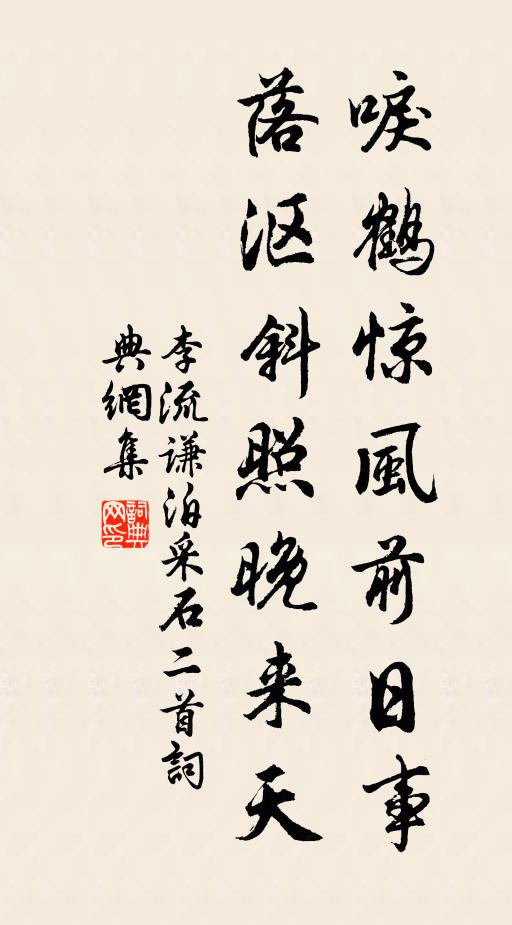 唳鶴惊風前日事
落沤斜照晚来天
李流谦泊采石二首詞
典網集
詞典
网印